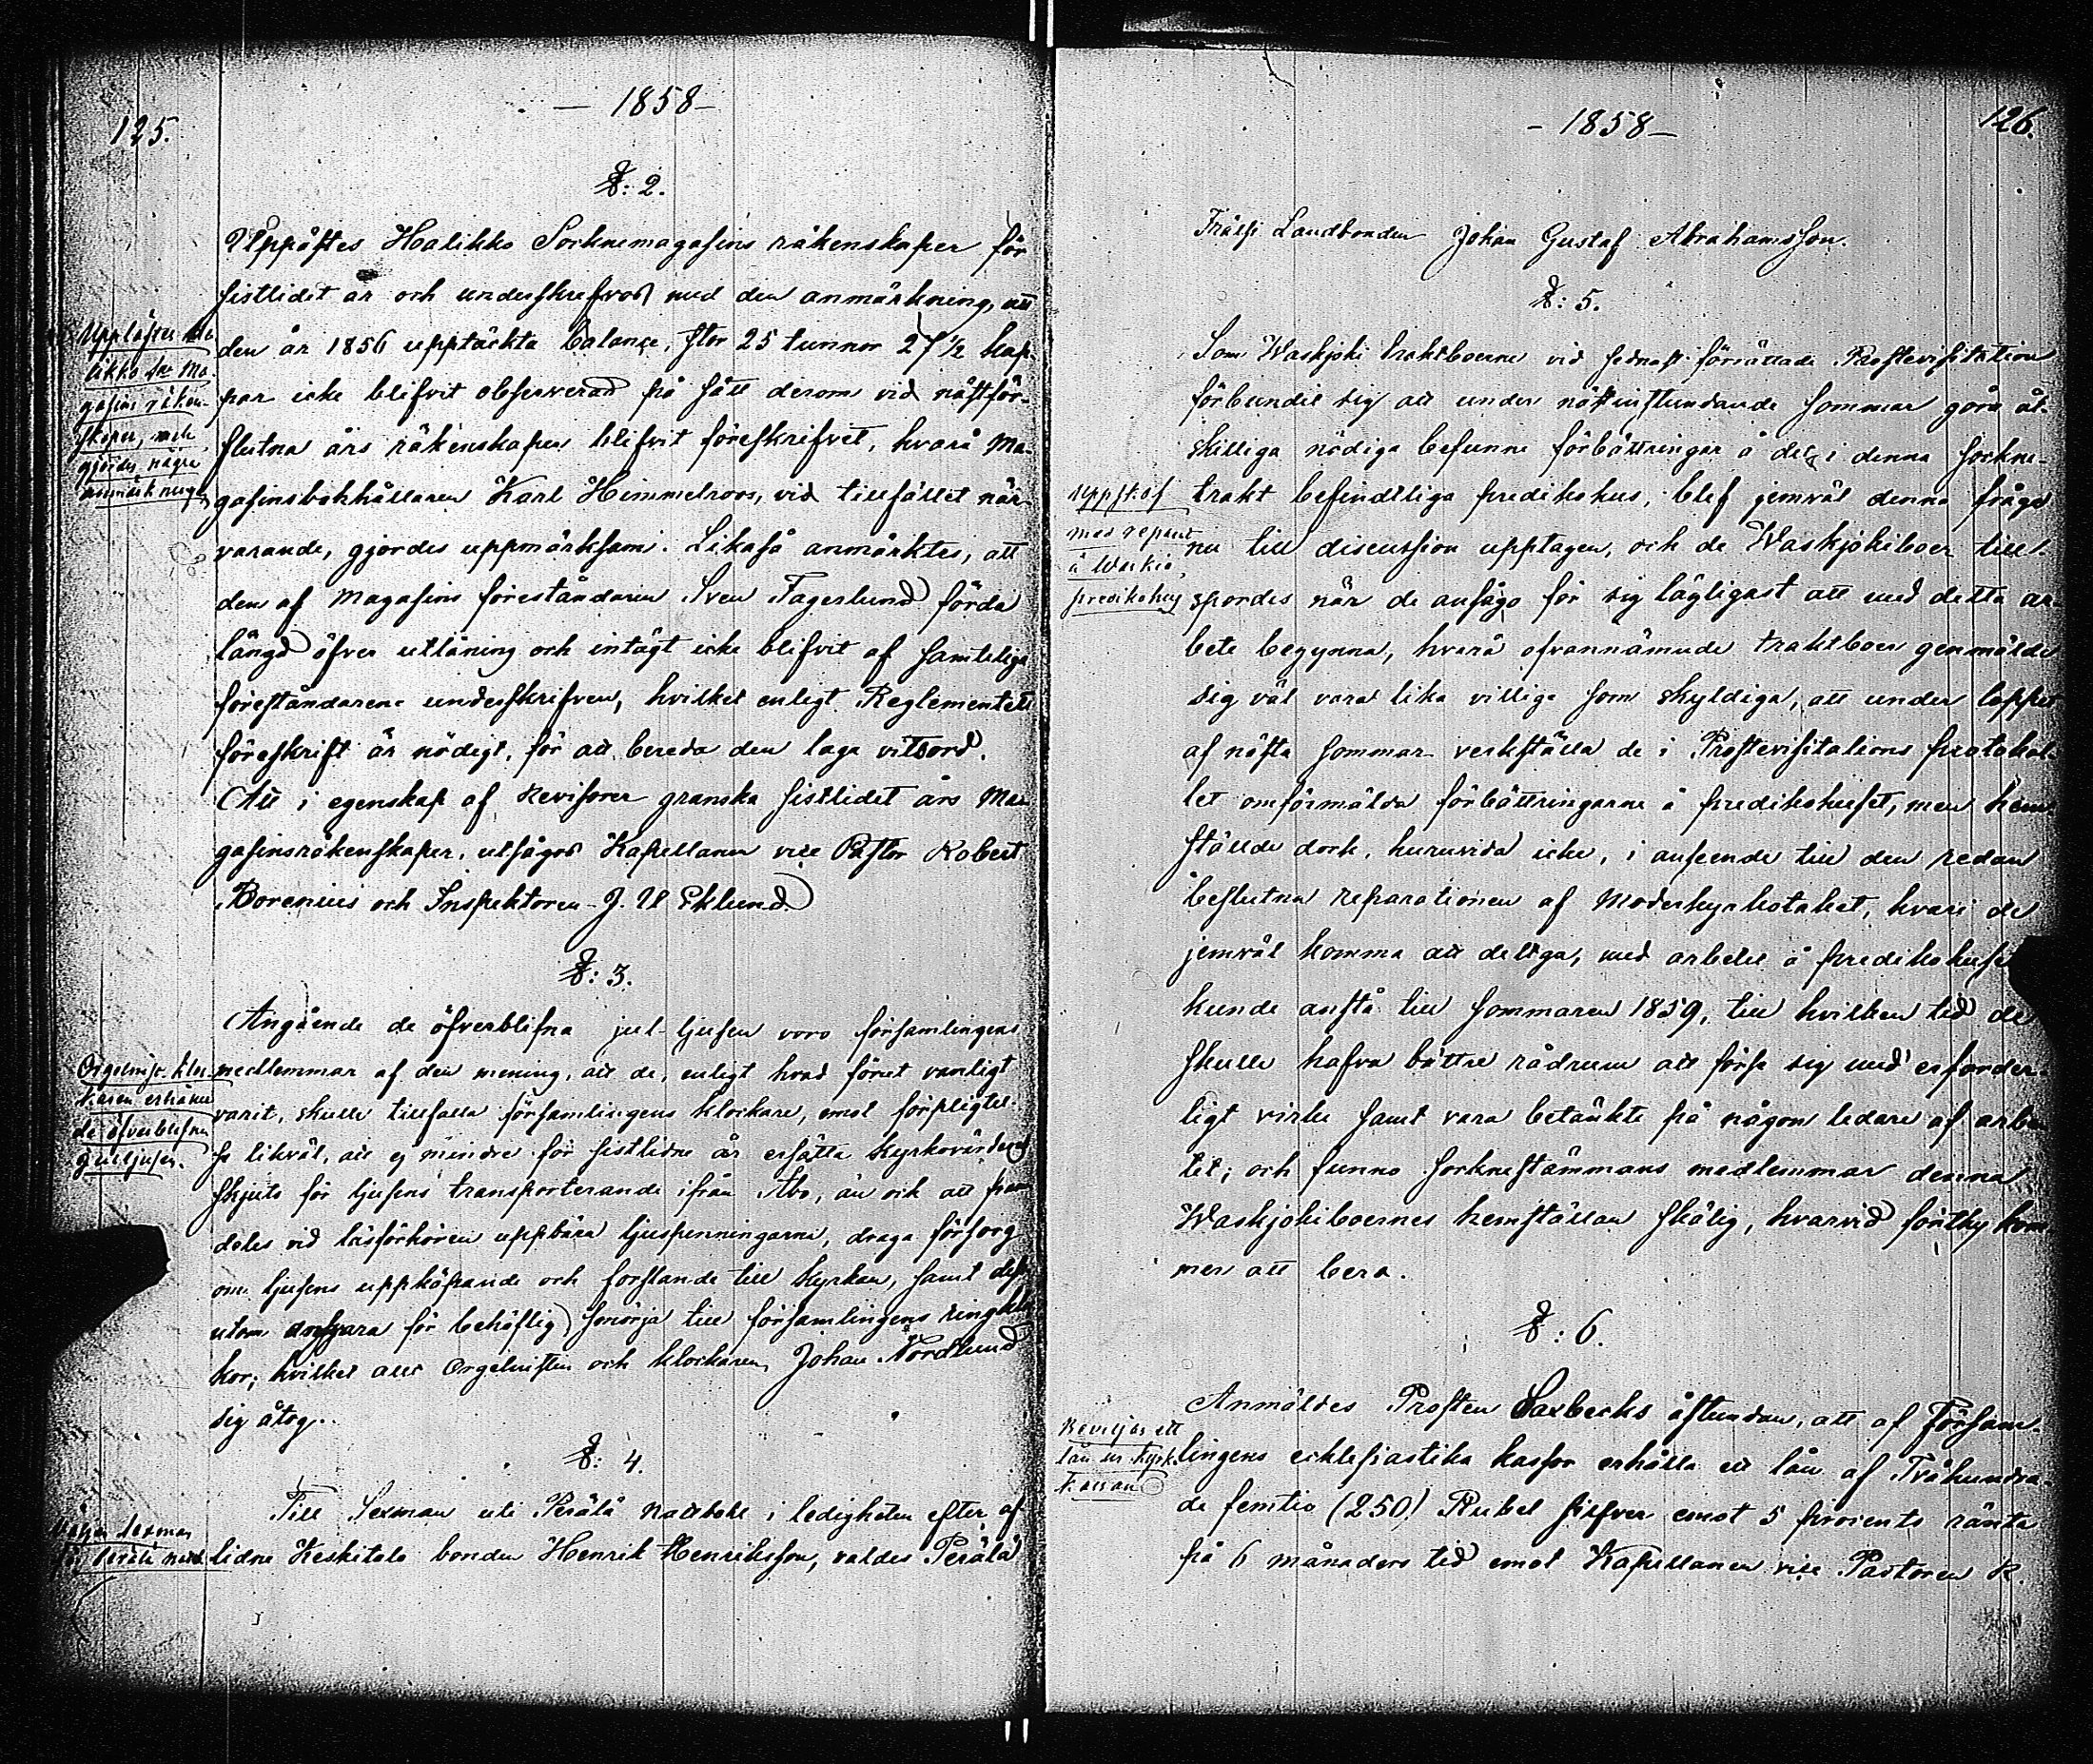 125.
— 1858 —
§: 2.
Upplästes Halikko Socknemagasins räkenskaper för
sistlidet år och underskrefvos med den anmärkning, att
den år 1856 upptäckta balance, stor 25 tunnor 27 1/2 kap-
par icke blifvit observerad på sätt derom vid nästför-
flutna års räkenskaper blifvit föreskrifvet, hvarå Ma-
gasinsbokhållaren Karl Himmelroos, vid tillfället när-
varande, gjordes uppmärksam. Likaså anmärktes, att
den af Magasins föreståndaren Sven Fagerlund förda
längd öfver utlåning och intägt icke blifvit af samteliga
föreståndarene underskrifven, hvilket enligt Reglementets
föreskrift är nödigt, för att bereda den laga vitsord.
Att i egenskap af Revisorer granska sistlidet års Ma-
gasinsräkenskaper, utsågos Kapellanen vice Pastor Robert
Borenius och Inspektoren J. U Eklund.
Upplästes Ha-
likko Sn Ma-
gasins räken-
skaper, och
gjordes några
anmärkningar
§: 3.
Angående de öfverblifna jul-ljusen voro församlingens
medlemmar af den mening, att de, enligt hvad förut vanligt
varit, skulle tillfalla församlingens klockare, emot förpligtel-
se likväl, att ej mindre för sistlidne år ersätta Kyrkovärden
skjuts för ljusens transporterande ifrån Åbo, än ock att fram
deles vid läsförhören uppbära ljuspenningarne, draga försorg
om ljusens uppköpande och forslande till kyrkan, samt dess-
utom ansvara för behöflig smörja till församlingens ringkloc
kor; hvilket allt Orgelnisten och klockaren Johan Nordlund
sig åtog.
Orgelnist. Kloc-
karen erhåller
de öfverblefna
julljusen.
§: 4.
Till Sexman uti Perälä Rotebohl i ledigheten efter af-
lidne Keskitalo bonden Henrik Henriksson, valdes Perälä
Sexman
för Perälä
126.
— 1858 —
Frälse Landbonden Johan Gustaf Abrahamsson.
§: 5.
Som Waskjoki traktboerne vid sednast förrättade Prostevisitation
förbundit sig att under nästinstundande sommar göra åt-
skilliga nödiga befunne förbättringar å det i denna sockne-
trakt befindtliga predikohus, blef jemväl denna fråga
nu till discussion upptagen, och de Waskjokiboer till-
spordes när de ansågo för sig lägligast att med detta ar-
bete begynna, hvarå ofvannämnde traktboer genmälde
sig väl vara lika villige som skyldiga, att under loppet
af nästa sommar verkställa de i Prostevisitations protokol-
let omförmälda förbättringarne å predikohuset, men hem
ställde dock, huruvida icke, i anseende till den redan
beslutna reparationen af Moderkyrkotaket, hvari de
jemväl komma att deltaga, med arbetet å predikohuset
kunde anstå till sommaren 1859, till hvilken tid de
skulle hafva bättre rådrum att förse sig med erforder-
ligt virke samt vara betänkte på någon ledare af arbe
tet; och funno sockneståmmans medlemmar denna
Waskjokiboernes hemställan skälig, hvarvid förthy kom
mer att bero.
Uppskof
med reparat.
å Waskio
predikohus
§: 6.
Anmäldes Prosten Saxbecks åstundan, att af Försam-
lingens ecklesiastika kassor erhålla ett lån af Tvåhundra-
de femtio (250) Rubel silfver emot 5 procents ränta
på 6 månaders tid emot Kapellanen vice Pastoren R.
Beviljas ett
lån ur Kyrk.
kassan